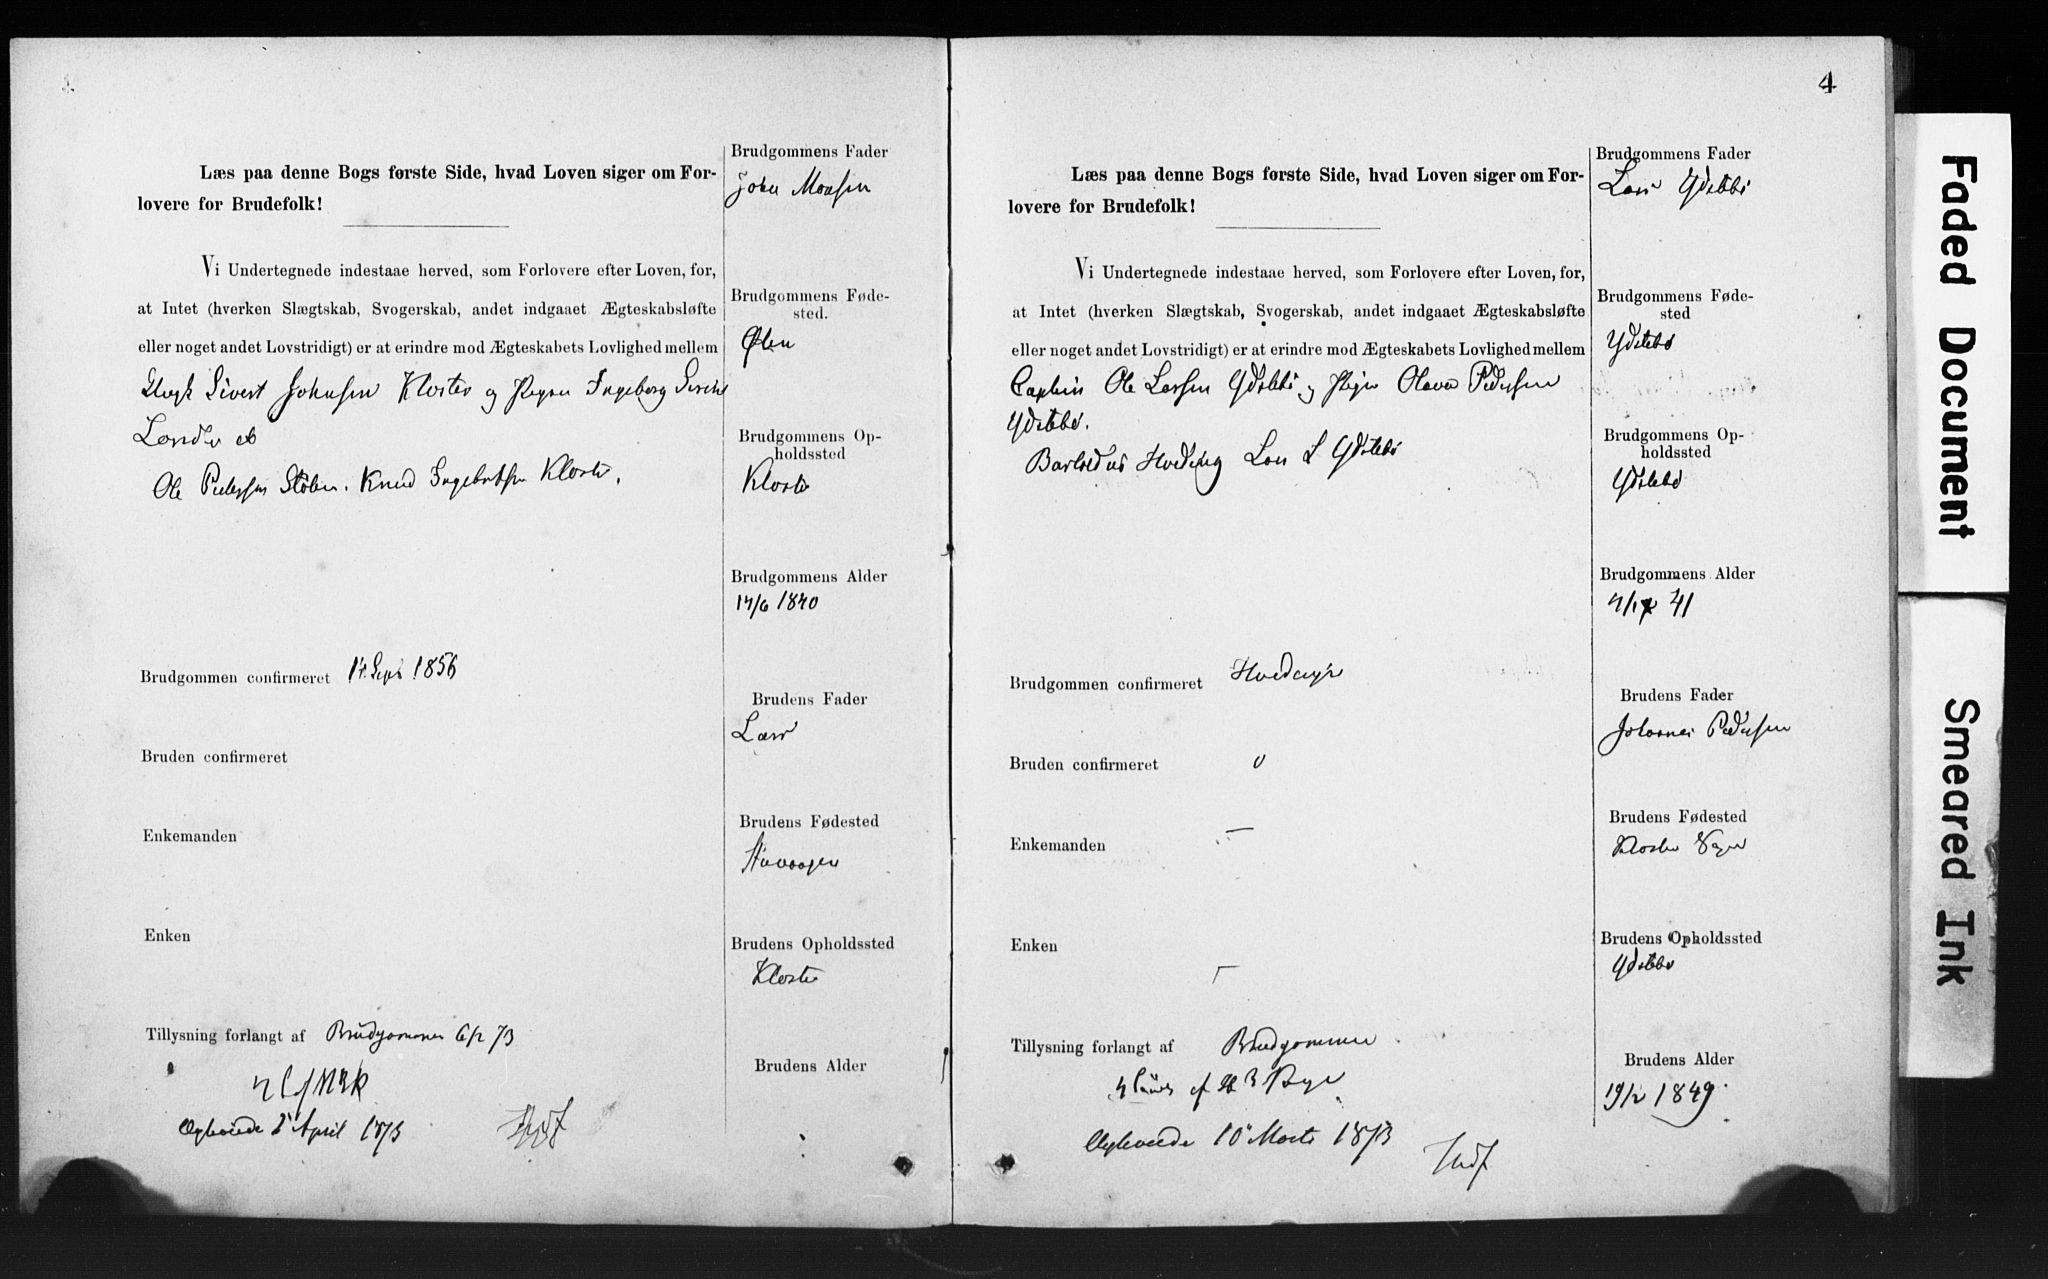 Læs paa denne Bogs første Side, hvad Loven siger om For-
lovere for Brudefolk!
Vi Undertegnede indestaae herved, som Forlovere efter Loven, for,
at Intet (hverken Slægtskab, Svogerskab, andet indgaaet Ægteskabsløfte
eller noget andet Lovstridigt) er at erindre mod Ægteskabets Lovlighed mellem
Sivert Johnsen Kloster og Pigen Ingeborg
Ole Pedersen Stølen. Knud Ingebretsen Kloster.
Brudgommen confirmeret 14 Sept 1856
Bruden confirmeret
Enkemanden
Enken
Tillysning forlangt af Brudgommen 6/2 73
Ægteviede 2 April 1873
Brudgommens Fader
John Monsen
Brudgommens Føde-
sted.
Ølen
Brudgommens Op-
holdssted
Kloster
Brudgommens Alder
14/6 1840
Brudens Fader
Lars
Brudens Fødested
Brudens Opholdssted
Kloster
Brudens Alder
4
Læs paa denne Bogs første Side, hvad Loven siger om For-
lovere for Brudefolk!
Vi Undertegnede indestaae herved, som Forlovere efter Loven, for,
at Intet (hverken Slægtskab, Svogerskab, andet indgaaet Ægteskabsløfte
eller noget andet Lovstridigt) er at erindre mod Ægteskabets Lovlighed mellem
Captein Ole Larsen Ydstebø og Pige Olava Pedersen
Ydstebø.
Hveding Lars L Ydstebø
Brudgommen confirmeret
Bruden confirmeret
Enkemanden —
Enken —
Tillysning forlangt af Brudgommen
Ægteviede 10 Marts 1873
Brudgommens Fader
Lars Ydstebø
Brudgommens Føde-
sted
Ydstebø
Brudgommens Op-
holdssted
Ydstebø
Brudgommens Alder
41
Brudens Fader
Johannes Pedersen
Brudens Fødested
Kloster
Brudens Opholdssted
Ydstebø
Brudens Alder
19/2 1849
Faded Document
Smeared Ink